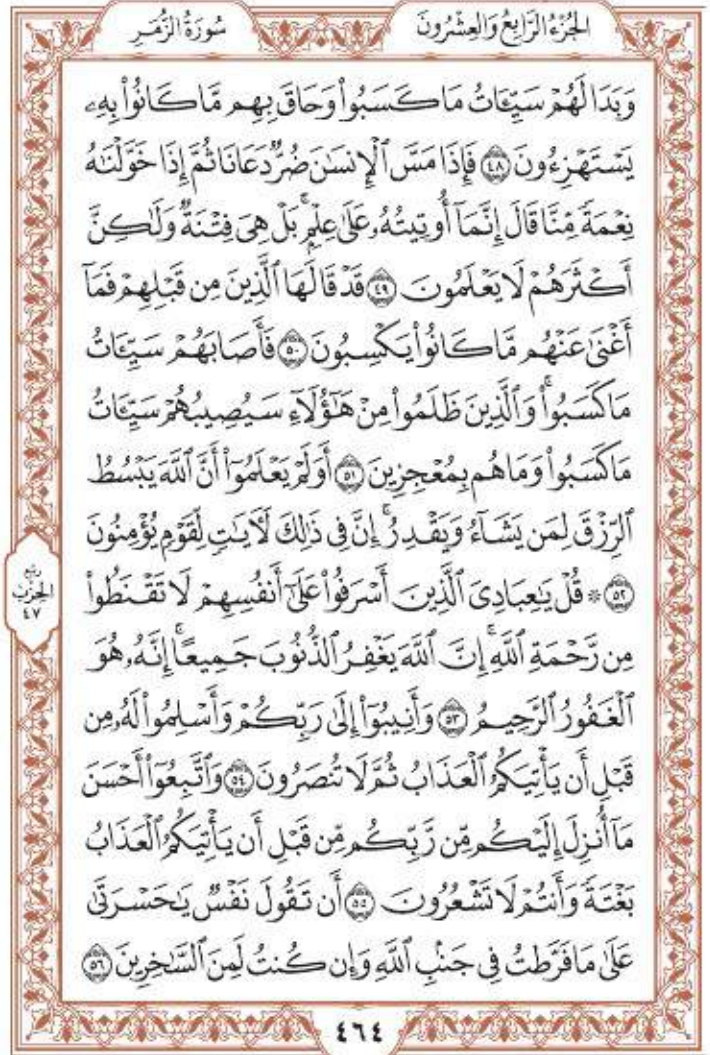 الجُزْءُ الرَّابِعُ وَالعِشْرُونَ
سُورَةُ الزُّمَرِ
وَبَدَا لَهُمْ سَيِّـَٔاتُ مَا كَسَبُوا۟ وَحَاقَ بِهِم مَّا كَانُوا۟ بِهِۦ
يَسْتَهْزِءُونَ ٤٨ فَإِذَا مَسَّ ٱلْإِنسَـٰنَ ضُرٌّ دَعَانَا ثُمَّ إِذَا خَوَّلْنَـٰهُ
نِعْمَةً مِّنَّا قَالَ إِنَّمَآ أُوتِيتُهُۥ عَلَىٰ عِلْمِۭ ۚ بَلْ هِىَ فِتْنَةٌ وَلَـٰكِنَّ
أَكْثَرَهُمْ لَا يَعْلَمُونَ ٤٩ قَدْ قَالَهَا ٱلَّذِينَ مِن قَبْلِهِمْ فَمَآ
أَغْنَىٰ عَنْهُم مَّا كَانُوا۟ يَكْسِبُونَ ٥٠ فَأَصَابَهُمْ سَيِّـَٔاتُ
مَا كَسَبُوا۟ ۚ وَٱلَّذِينَ ظَلَمُوا۟ مِنْ هَـٰٓؤُلَآءِ سَيُصِيبُهُمْ سَيِّـَٔاتُ
مَا كَسَبُوا۟ وَمَا هُم بِمُعْجِزِينَ ٥١ أَوَلَمْ يَعْلَمُوٓا۟ أَنَّ ٱللَّهَ يَبْسُطُ
ٱلرِّزْقَ لِمَن يَشَآءُ وَيَقْدِرُ ۚ إِنَّ فِى ذَٰلِكَ لَـَٔايَـٰتٍ لِّقَوْمٍ يُؤْمِنُونَ
٥٢ ۞ قُلْ يَـٰعِبَادِىَ ٱلَّذِينَ أَسْرَفُوا۟ عَلَىٰٓ أَنفُسِهِمْ لَا تَقْنَطُوا۟
مِن رَّحْمَةِ ٱللَّهِ ۚ إِنَّ ٱللَّهَ يَغْفِرُ ٱلذُّنُوبَ جَمِيعًا ۚ إِنَّهُۥ هُوَ
ٱلْغَفُورُ ٱلرَّحِيمُ ٥٣ وَأَنِيبُوٓا۟ إِلَىٰ رَبِّكُمْ وَأَسْلِمُوا۟ لَهُۥ مِن
قَبْلِ أَن يَأْتِيَكُمُ ٱلْعَذَابُ ثُمَّ لَا تُنصَرُونَ ٥٤ وَٱتَّبِعُوٓا۟ أَحْسَنَ
مَآ أُنزِلَ إِلَيْكُم مِّن رَّبِّكُم مِّن قَبْلِ أَن يَأْتِيَكُمُ ٱلْعَذَابُ
بَغْتَةً وَأَنتُمْ لَا تَشْعُرُونَ ٥٥ أَن تَقُولَ نَفْسٌ يَـٰحَسْرَتَىٰ
عَلَىٰ مَا فَرَّطتُ فِى جَنۢبِ ٱللَّهِ وَإِن كُنتُ لَمِنَ ٱلسَّـٰخِرِينَ ٥٦
ربع
الحزب
٤٧
٤٦٤